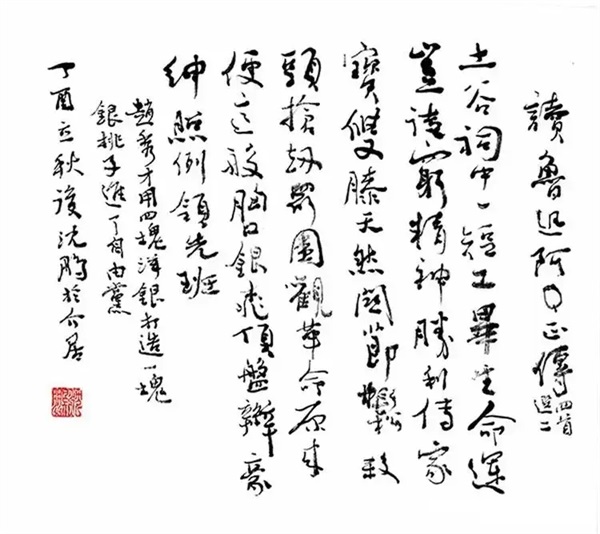 讀魯迅阿Q正傳 四首選二
土谷祠中一短工畢生命運
豈諱窮精神勝利傳家
寶雙膝天然關節鬆 殺
頭搶劫圍觀革命原來
便這般胸口銀桃頂盤辮豪
紳照例領先班
趙秀才用四塊洋銀打造一塊
銀桃子進了自由黨
丁酉立秋後沈鵬於介居